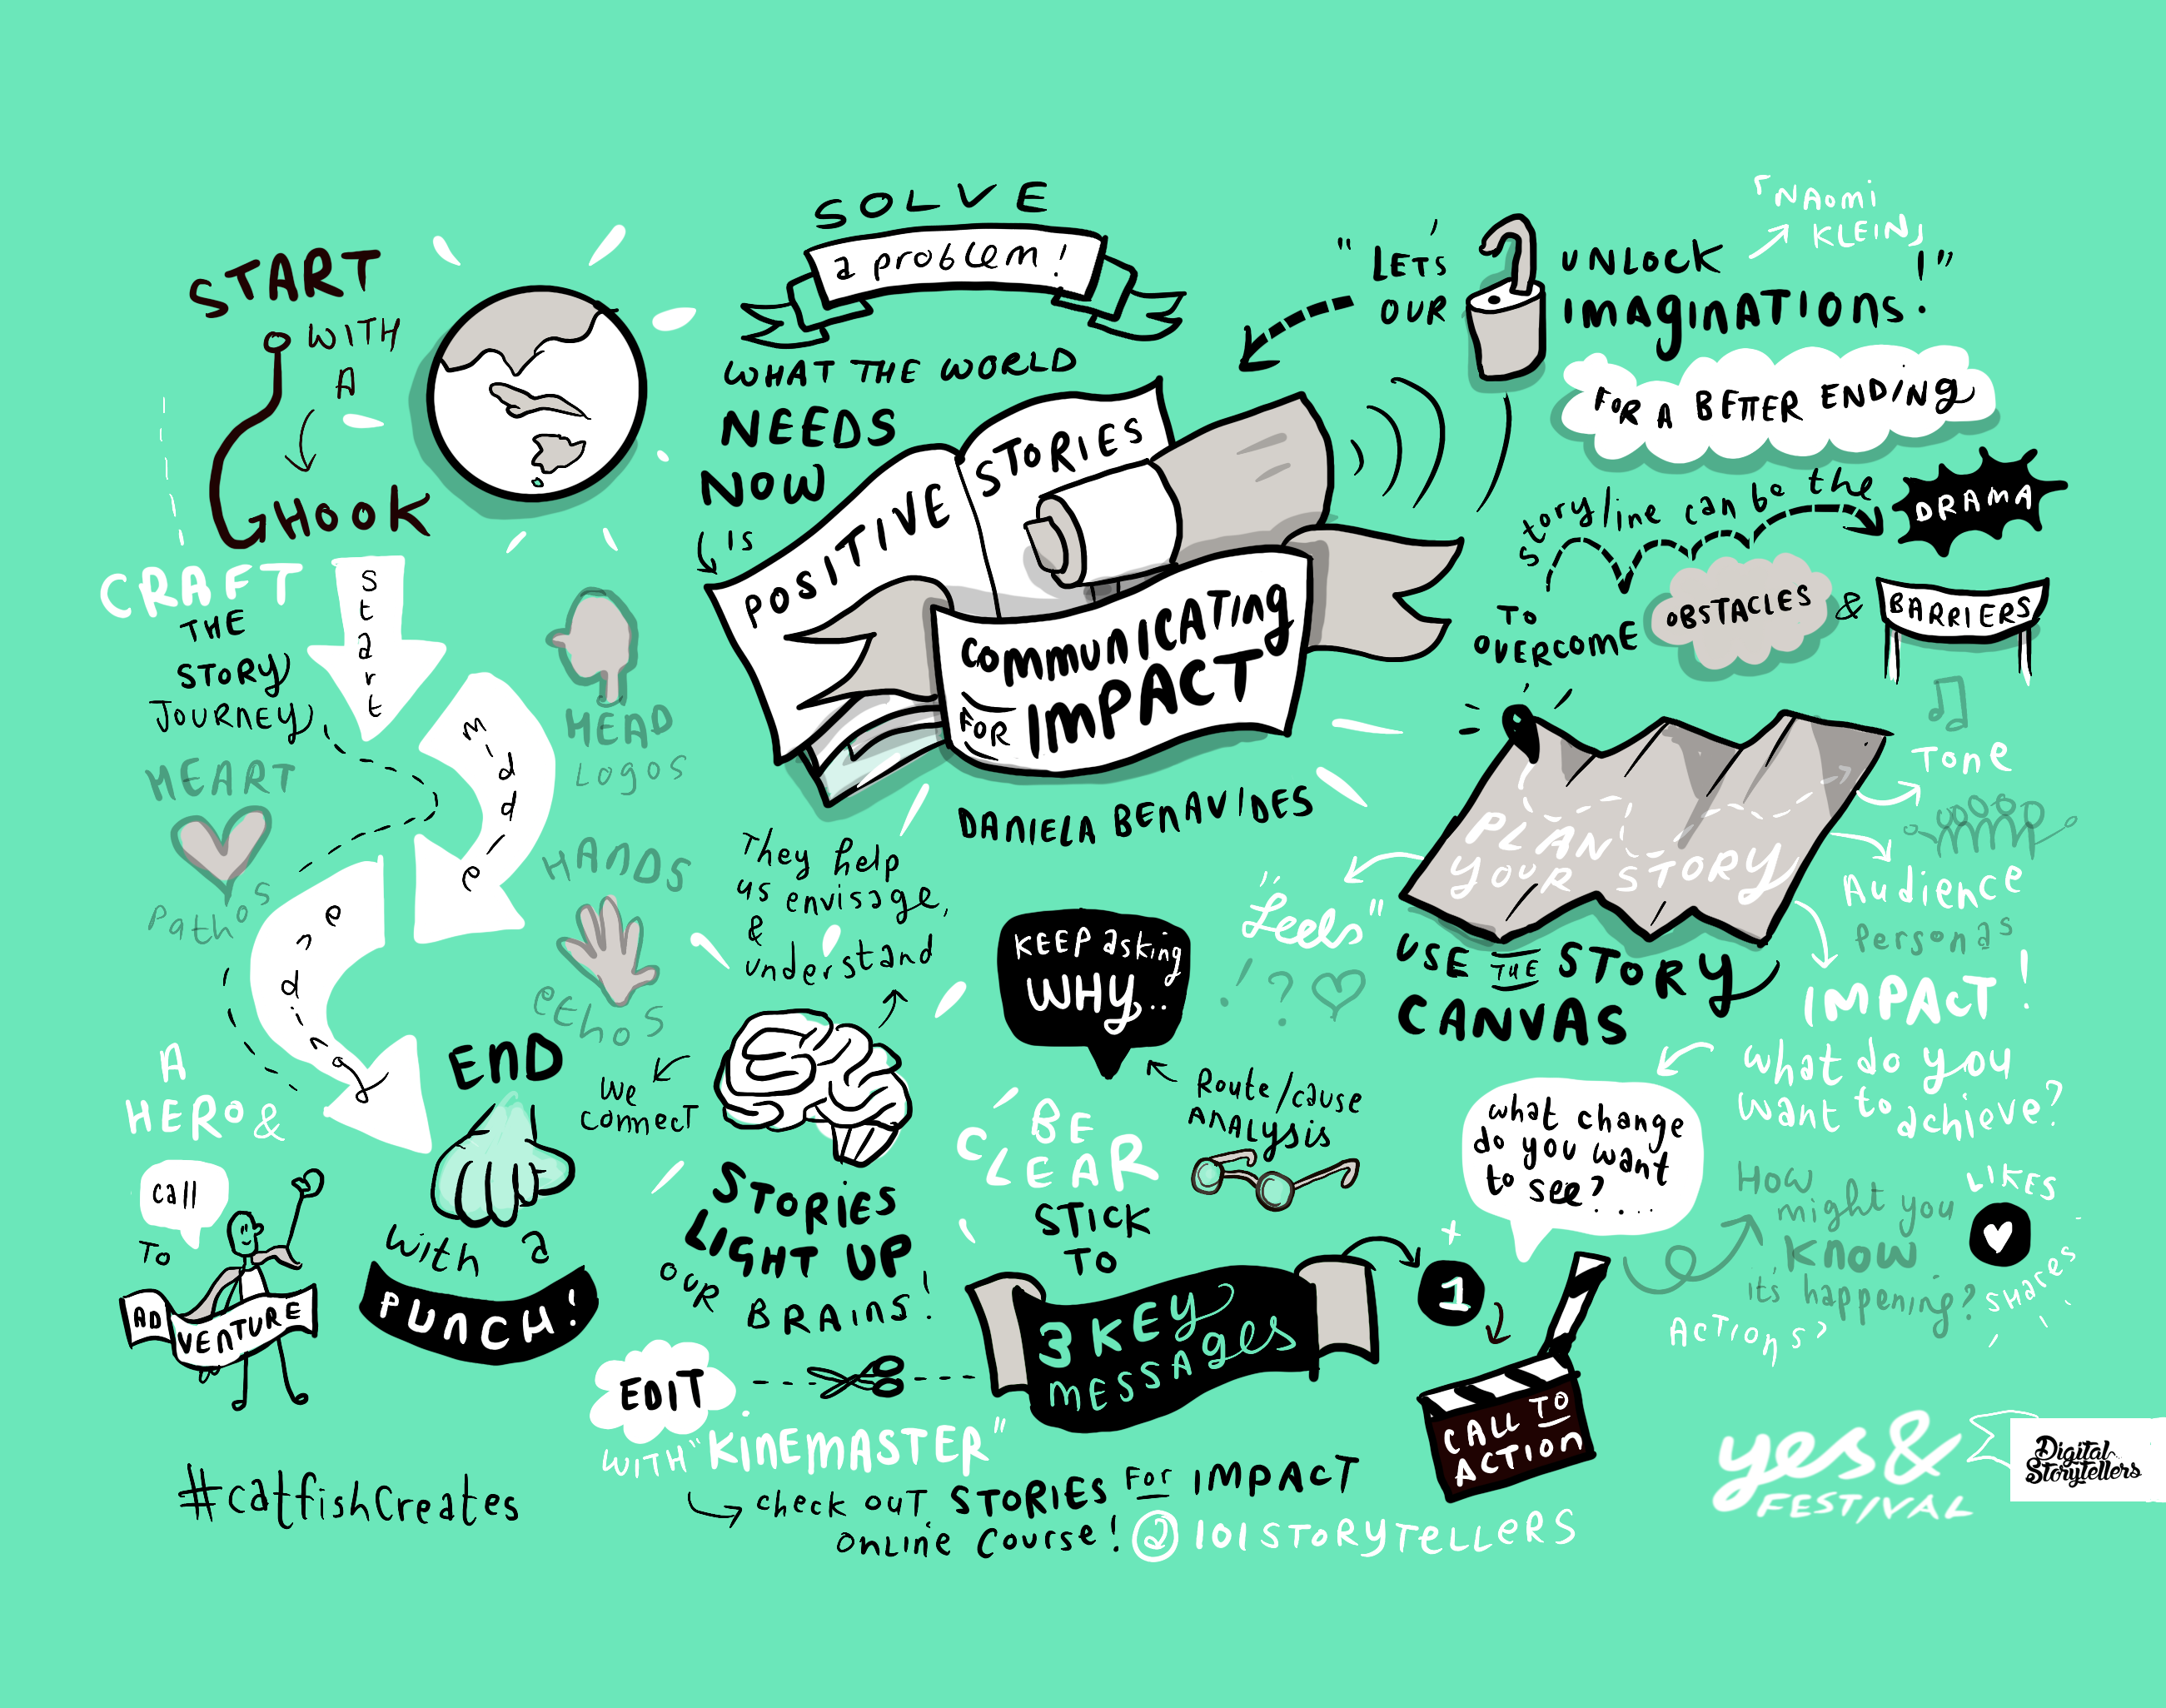 START
WITH
A
HOOK
CRAFT
THE
STORY
JOURNEY
start
middle
ending
HEART
Pathos
HEAD
LOGOS
HANDS
ethos
A
HERO &
call
TO
AD
VENTURE
END
with a
PUNCH!
#catfishCreates
SOLVE
a problem!
WHAT THE WORLD
NEEDS
NOW
IS
POSITIVE
STORIES
COMMUNICATING
FOR IMPACT
DANIELA BENAVIDES
They help
us envisage,
&
understand
We
connect
STORIES
LIGHT UP
OUR
BRAINS!
KEEP asking
WHY..
Route/cause
ANALYSIS
BE
CLEAR
STICK
TO
3 KEY
MESSAGES
EDIT
WITH "KINEMASTER"
check out STORIES FOR IMPACT
ONLINE COURSE! @101STORYTELLERS
"LET'S UNLOCK
OUR IMAGINATIONS!"
「NAOMI
KLEIN」
FOR A BETTER ENDING
storyline can be the
DRAMA
TO
OVERCOME
OBSTACLES & BARRIERS
PLAN
YOUR STORY
USE THE STORY
CANVAS
Tone
Audience
Personas
IMPACT!
what do you
want to achieve?
"Feels"
!?
what change
do you want
to see?....
How
might you
KNOW
it's happening?
LIKES
SHARES
ACTIONS?
+
1
CALL TO
ACTION
yes &
FESTIVAL
Digital
Storytellers